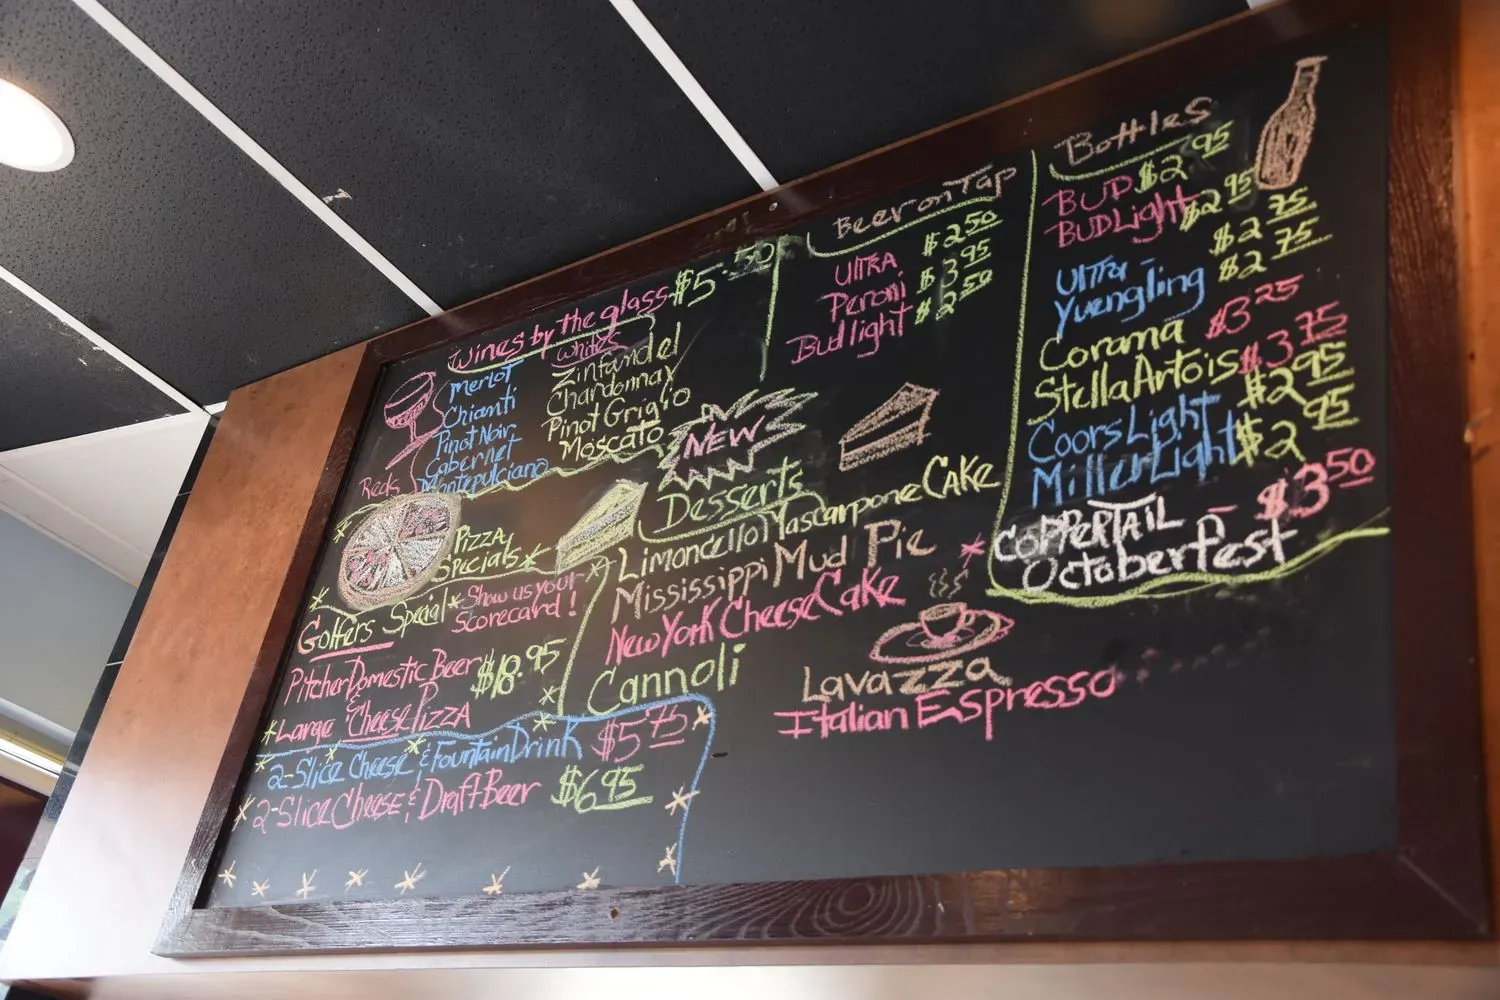 Wines by the glass $5.50
Reds
Merlot
Chianti
Pinot Noir
Cabernet
Montepulciano
Whites
Zinfandel
Chardonnay
Pinot Grigio
Moscato
Beer on Tap
Ultra $2.50
Peroni $3.95
Bud light $2.50
Bottles
BUD $2.95
BUD Light $2.95
Ultra - $2.75
Yuengling $2.75
Corona $3.25
Stella Artois $3.75
Coors Light $2.95
Miller Light $2.95
COPPERTAIL - $3.50
Octoberfest
Pizza
Specials
Golfers Special * Show us your
Scorecard!
Pitcher Domestic Beer $18.95
&
Large Cheese Pizza
2-Slice Cheese & Fountain Drink $5.75
2-Slice Cheese & Draft Beer $6.95
NEW
Desserts
Limoncello Mascarpone CAKE
Mississippi Mud Pie
New York Cheese Cake
Cannoli
Lavazza
Italian Espresso